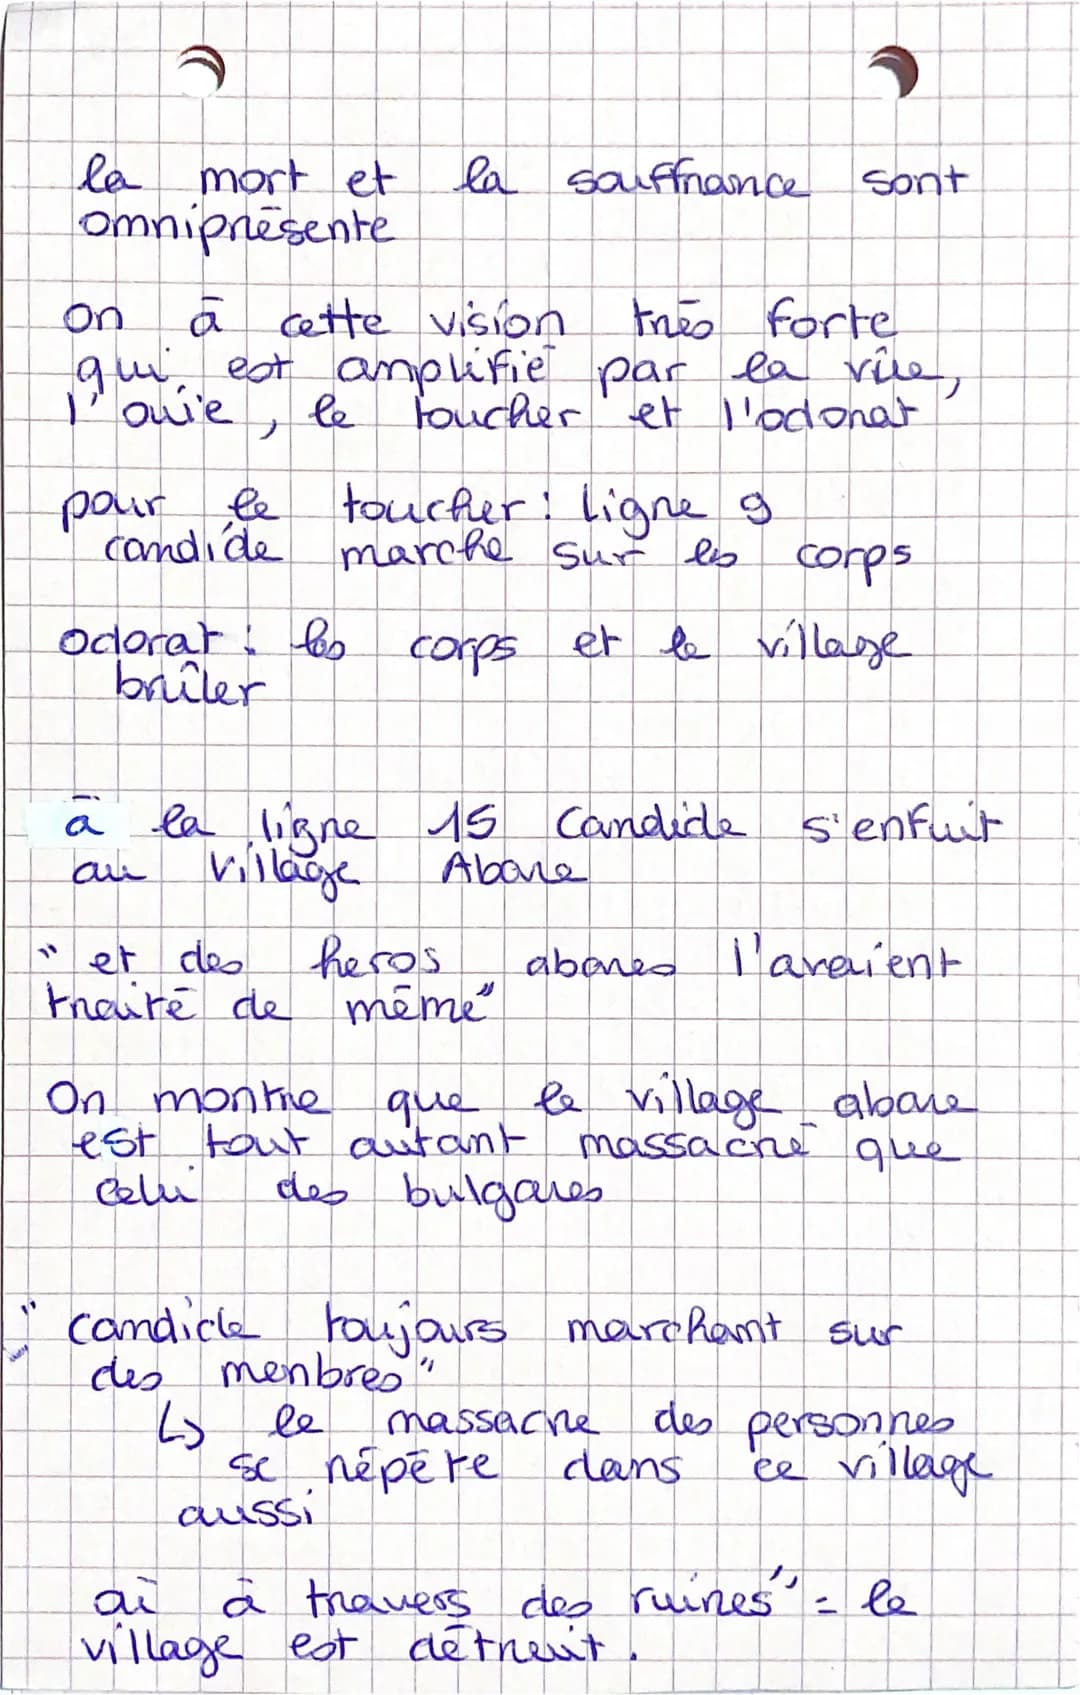 la mort et la souffrance sont
omniprésente
on à cette vision très forte
qui est amplifié par la vûe,
l'ouïe, le toucher et l'odorat
pour le toucher : ligne 9
candide marche sur les corps
odorat : les corps et le village
brûler
à la ligne 15 Candide s'enfuit
au village Abare
" et des heros abares l'avaient
traité de même"
On montre que le village abare
est tout autant massacré que
celui des bulgares
" candide toujours marchant sur
des menbres"
↳ le massacre des personnes
se répète dans ce village
aussi
où à travers des ruines" = le
village est détruit.